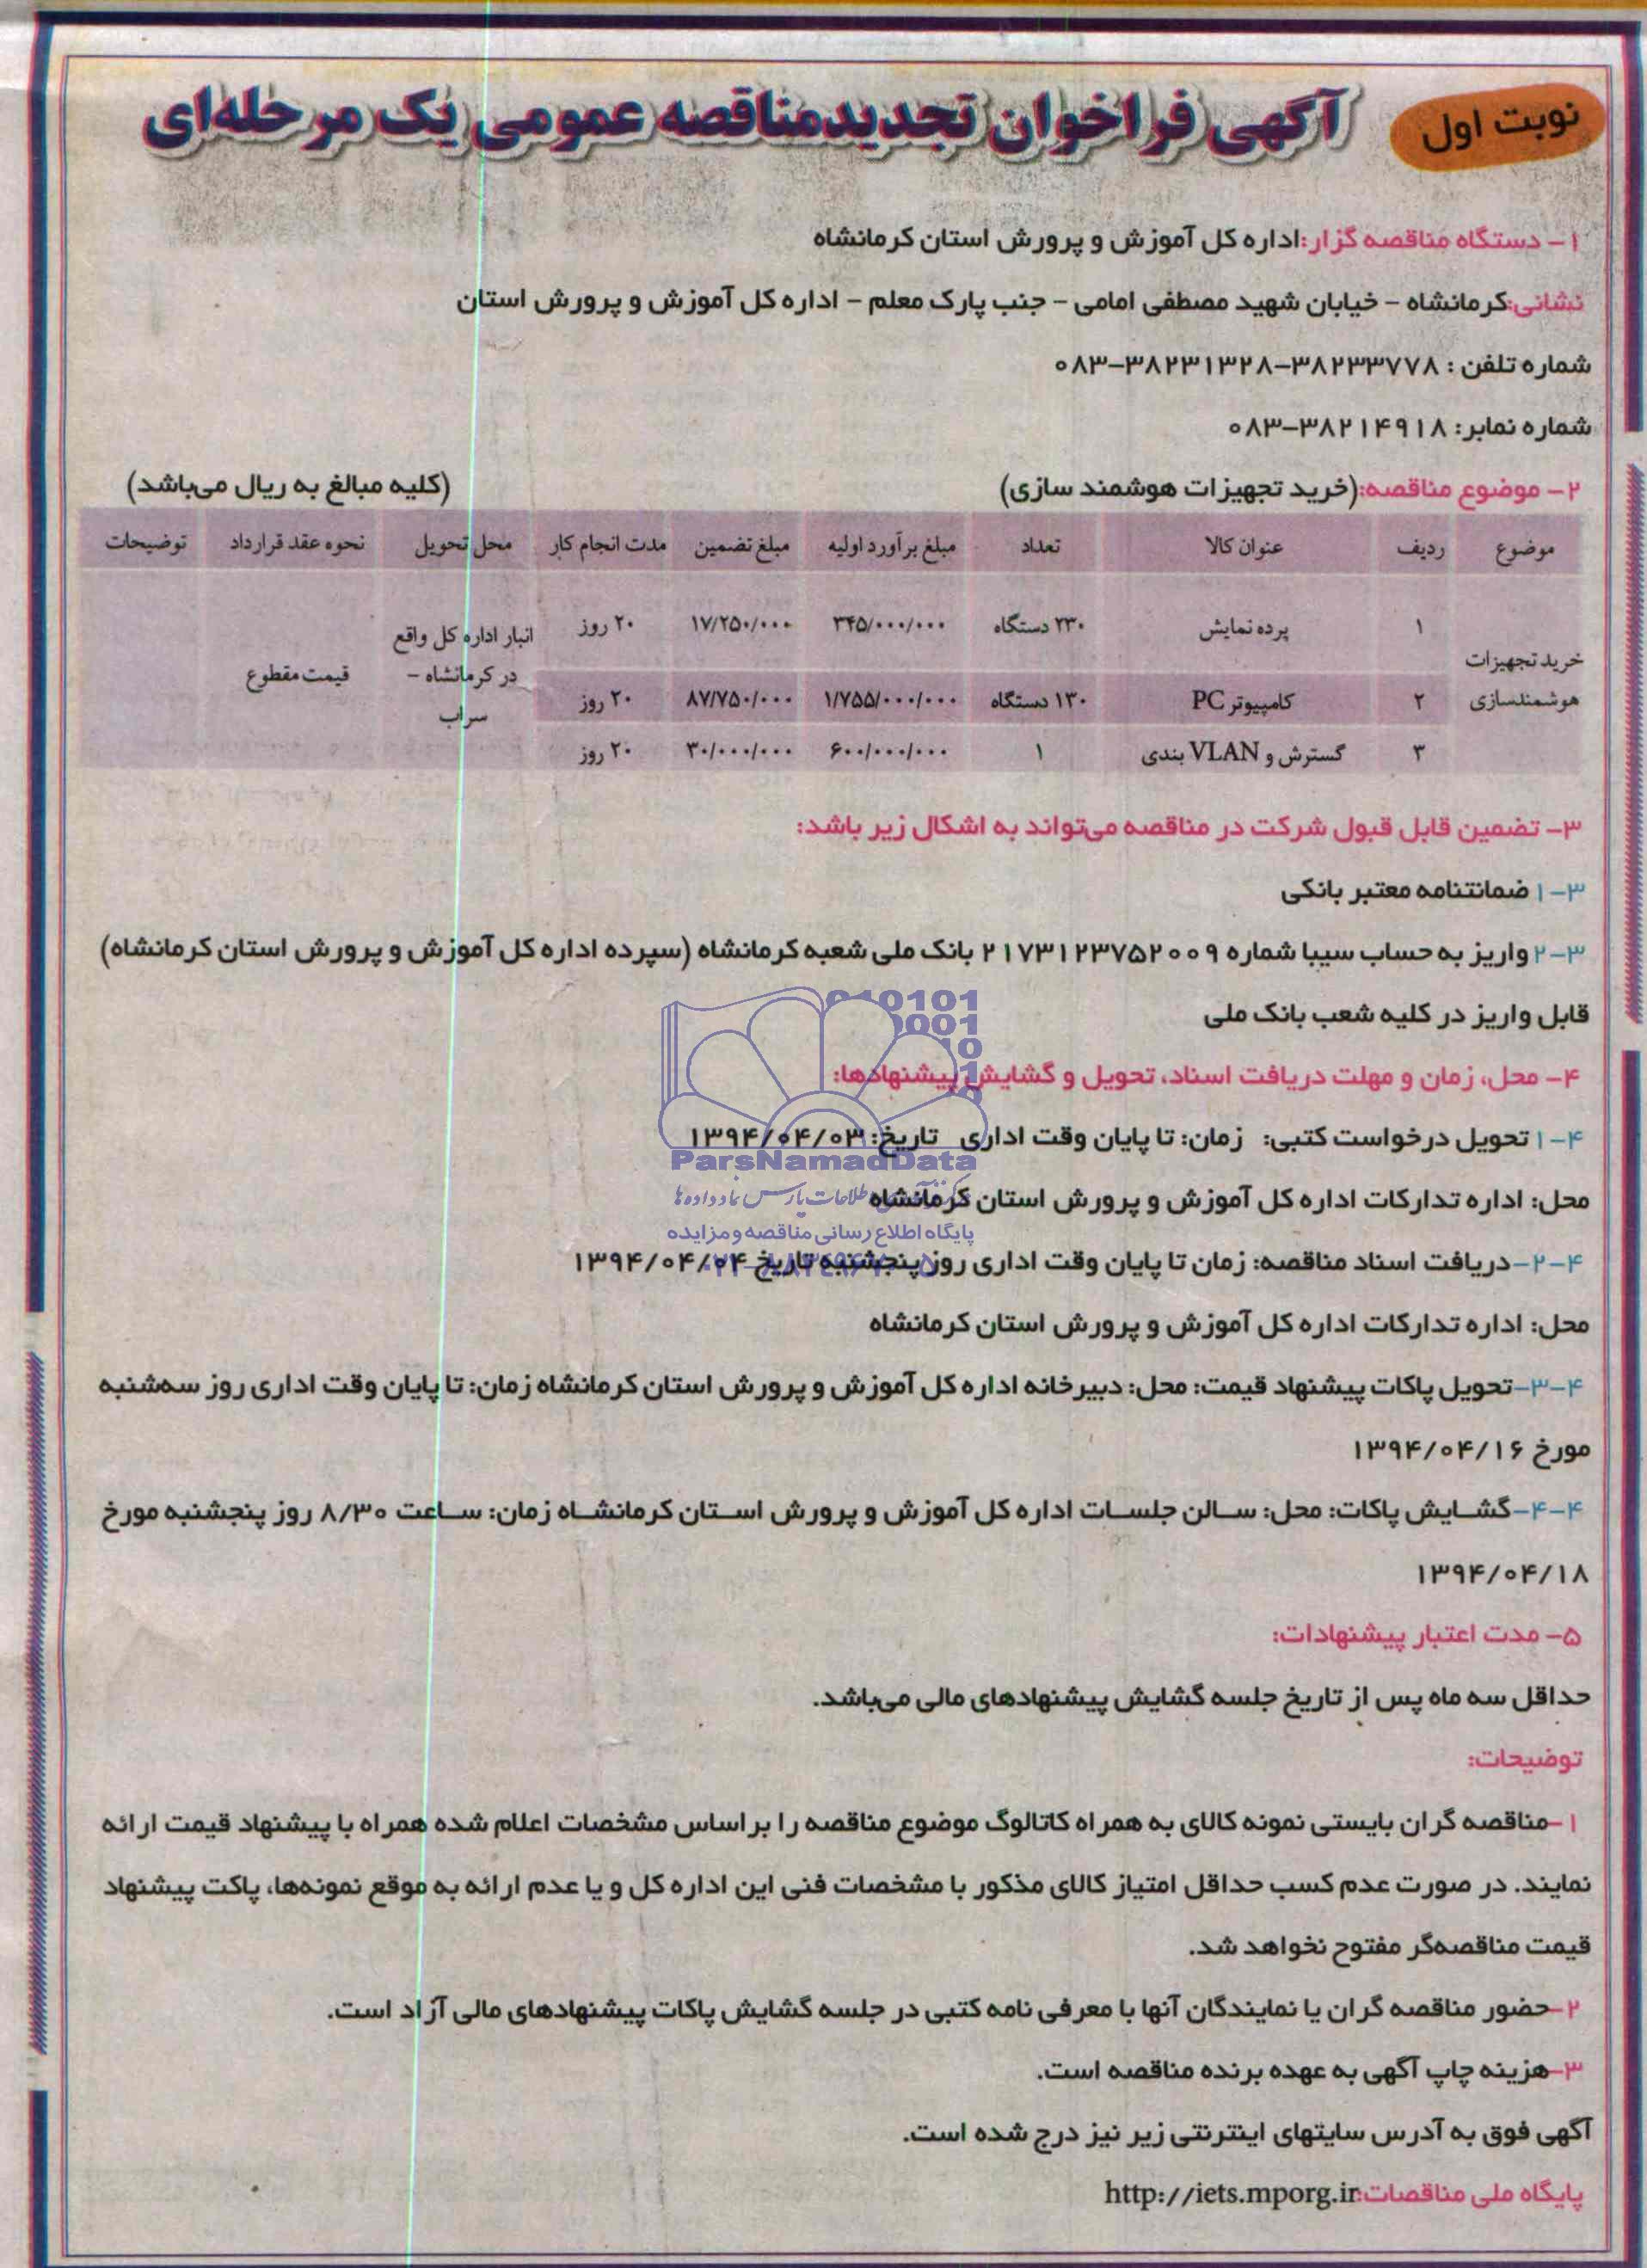 نوبت اول
آگهی فراخوان تجدید مناقصه عمومی یک مرحله‌ای
۱- دستگاه مناقصه گزار: اداره کل آموزش و پرورش استان کرمانشاه
نشانی: کرمانشاه - خیابان شهید مصطفی امامی - جنب پارک معلم - اداره کل آموزش و پرورش استان
شماره تلفن : ۳۸۲۳۳۷۷۸-۳۸۲۳۱۳۲۸-۰۸۳
شماره نمابر: ۳۸۲۱۴۹۱۸-۰۸۳
۲- موضوع مناقصه: (خرید تجهیزات هوشمند سازی) (کلیه مبالغ به ریال می‌باشد)
موضوع ردیف عنوان کالا تعداد مبلغ برآورد اولیه مبلغ تضمین مدت انجام کار محل تحویل نحوه عقد قرارداد توضیحات
خرید تجهیزات هوشمندسازی
۱ پرده نمایش ۲۳۰ دستگاه ۳۴۵/۰۰۰/۰۰۰ ۱۷/۲۵۰/۰۰۰ ۲۰ روز
۲ کامپیوتر PC ۱۳۰ دستگاه ۱/۷۵۵/۰۰۰/۰۰۰ ۸۷/۷۵۰/۰۰۰ ۲۰ روز
۳ گسترش و VLAN بندی ۱ ۶۰۰/۰۰۰/۰۰۰ ۳۰/۰۰۰/۰۰۰ ۲۰ روز
انبار اداره کل واقع
در کرمانشاه -
سراب
قیمت مقطوع
۳- تضمین قابل قبول شرکت در مناقصه می‌تواند به اشکال زیر باشد:
۳-۱ ضمانتنامه معتبر بانکی
۳-۲ واریز به حساب سیبا شماره ۲۱۷۳۱۲۳۷۵۲۰۰۹ بانک ملی شعبه کرمانشاه (سپرده اداره کل آموزش و پرورش استان کرمانشاه)
قابل واریز در کلیه شعب بانک ملی
۴- محل، زمان و مهلت دریافت اسناد، تحویل و گشایش پیشنهادها:
۴-۱ تحویل درخواست کتبی: زمان: تا پایان وقت اداری تاریخ: ۱۳۹۴/۰۴/۰۳
ParsNamadData
محل: اداره تدارکات اداره کل آموزش و پرورش استان کرمانشاه
پایگاه اطلاع رسانی مناقصه و مزایده
۴-۲-دریافت اسناد مناقصه: زمان تا پایان وقت اداری روز پنجشنبه تاریخ ۱۳۹۴/۰۴/۰۴
محل: اداره تدارکات اداره کل آموزش و پرورش استان کرمانشاه
۴-۳-تحویل پاکات پیشنهاد قیمت: محل: دبیرخانه اداره کل آموزش و پرورش استان کرمانشاه زمان: تا پایان وقت اداری روز سه‌شنبه
مورخ ۱۳۹۴/۰۴/۱۶
۴-۴-گشایش پاکات: محل: سالن جلسات اداره کل آموزش و پرورش استان کرمانشاه زمان: ساعت ۸/۳۰ روز پنجشنبه مورخ
۱۳۹۴/۰۴/۱۸
۵- مدت اعتبار پیشنهادات:
حداقل سه ماه پس از تاریخ جلسه گشایش پیشنهادهای مالی می‌باشد.
توضیحات:
۱-مناقصه گران بایستی نمونه کالای به همراه کاتالوگ موضوع مناقصه را براساس مشخصات اعلام شده همراه با پیشنهاد قیمت ارائه
نمایند. در صورت عدم کسب حداقل امتیاز کالای مذکور با مشخصات فنی این اداره کل و یا عدم ارائه به موقع نمونه‌ها، پاکت پیشنهاد
قیمت مناقصه‌گر مفتوح نخواهد شد.
۲-حضور مناقصه گران یا نمایندگان آنها با معرفی نامه کتبی در جلسه گشایش پاکات پیشنهادهای مالی آزاد است.
۳-هزینه چاپ آگهی به عهده برنده مناقصه است.
آگهی فوق به آدرس سایتهای اینترنتی زیر نیز درج شده است.
پایگاه ملی مناقصات: http://iets.mporg.ir